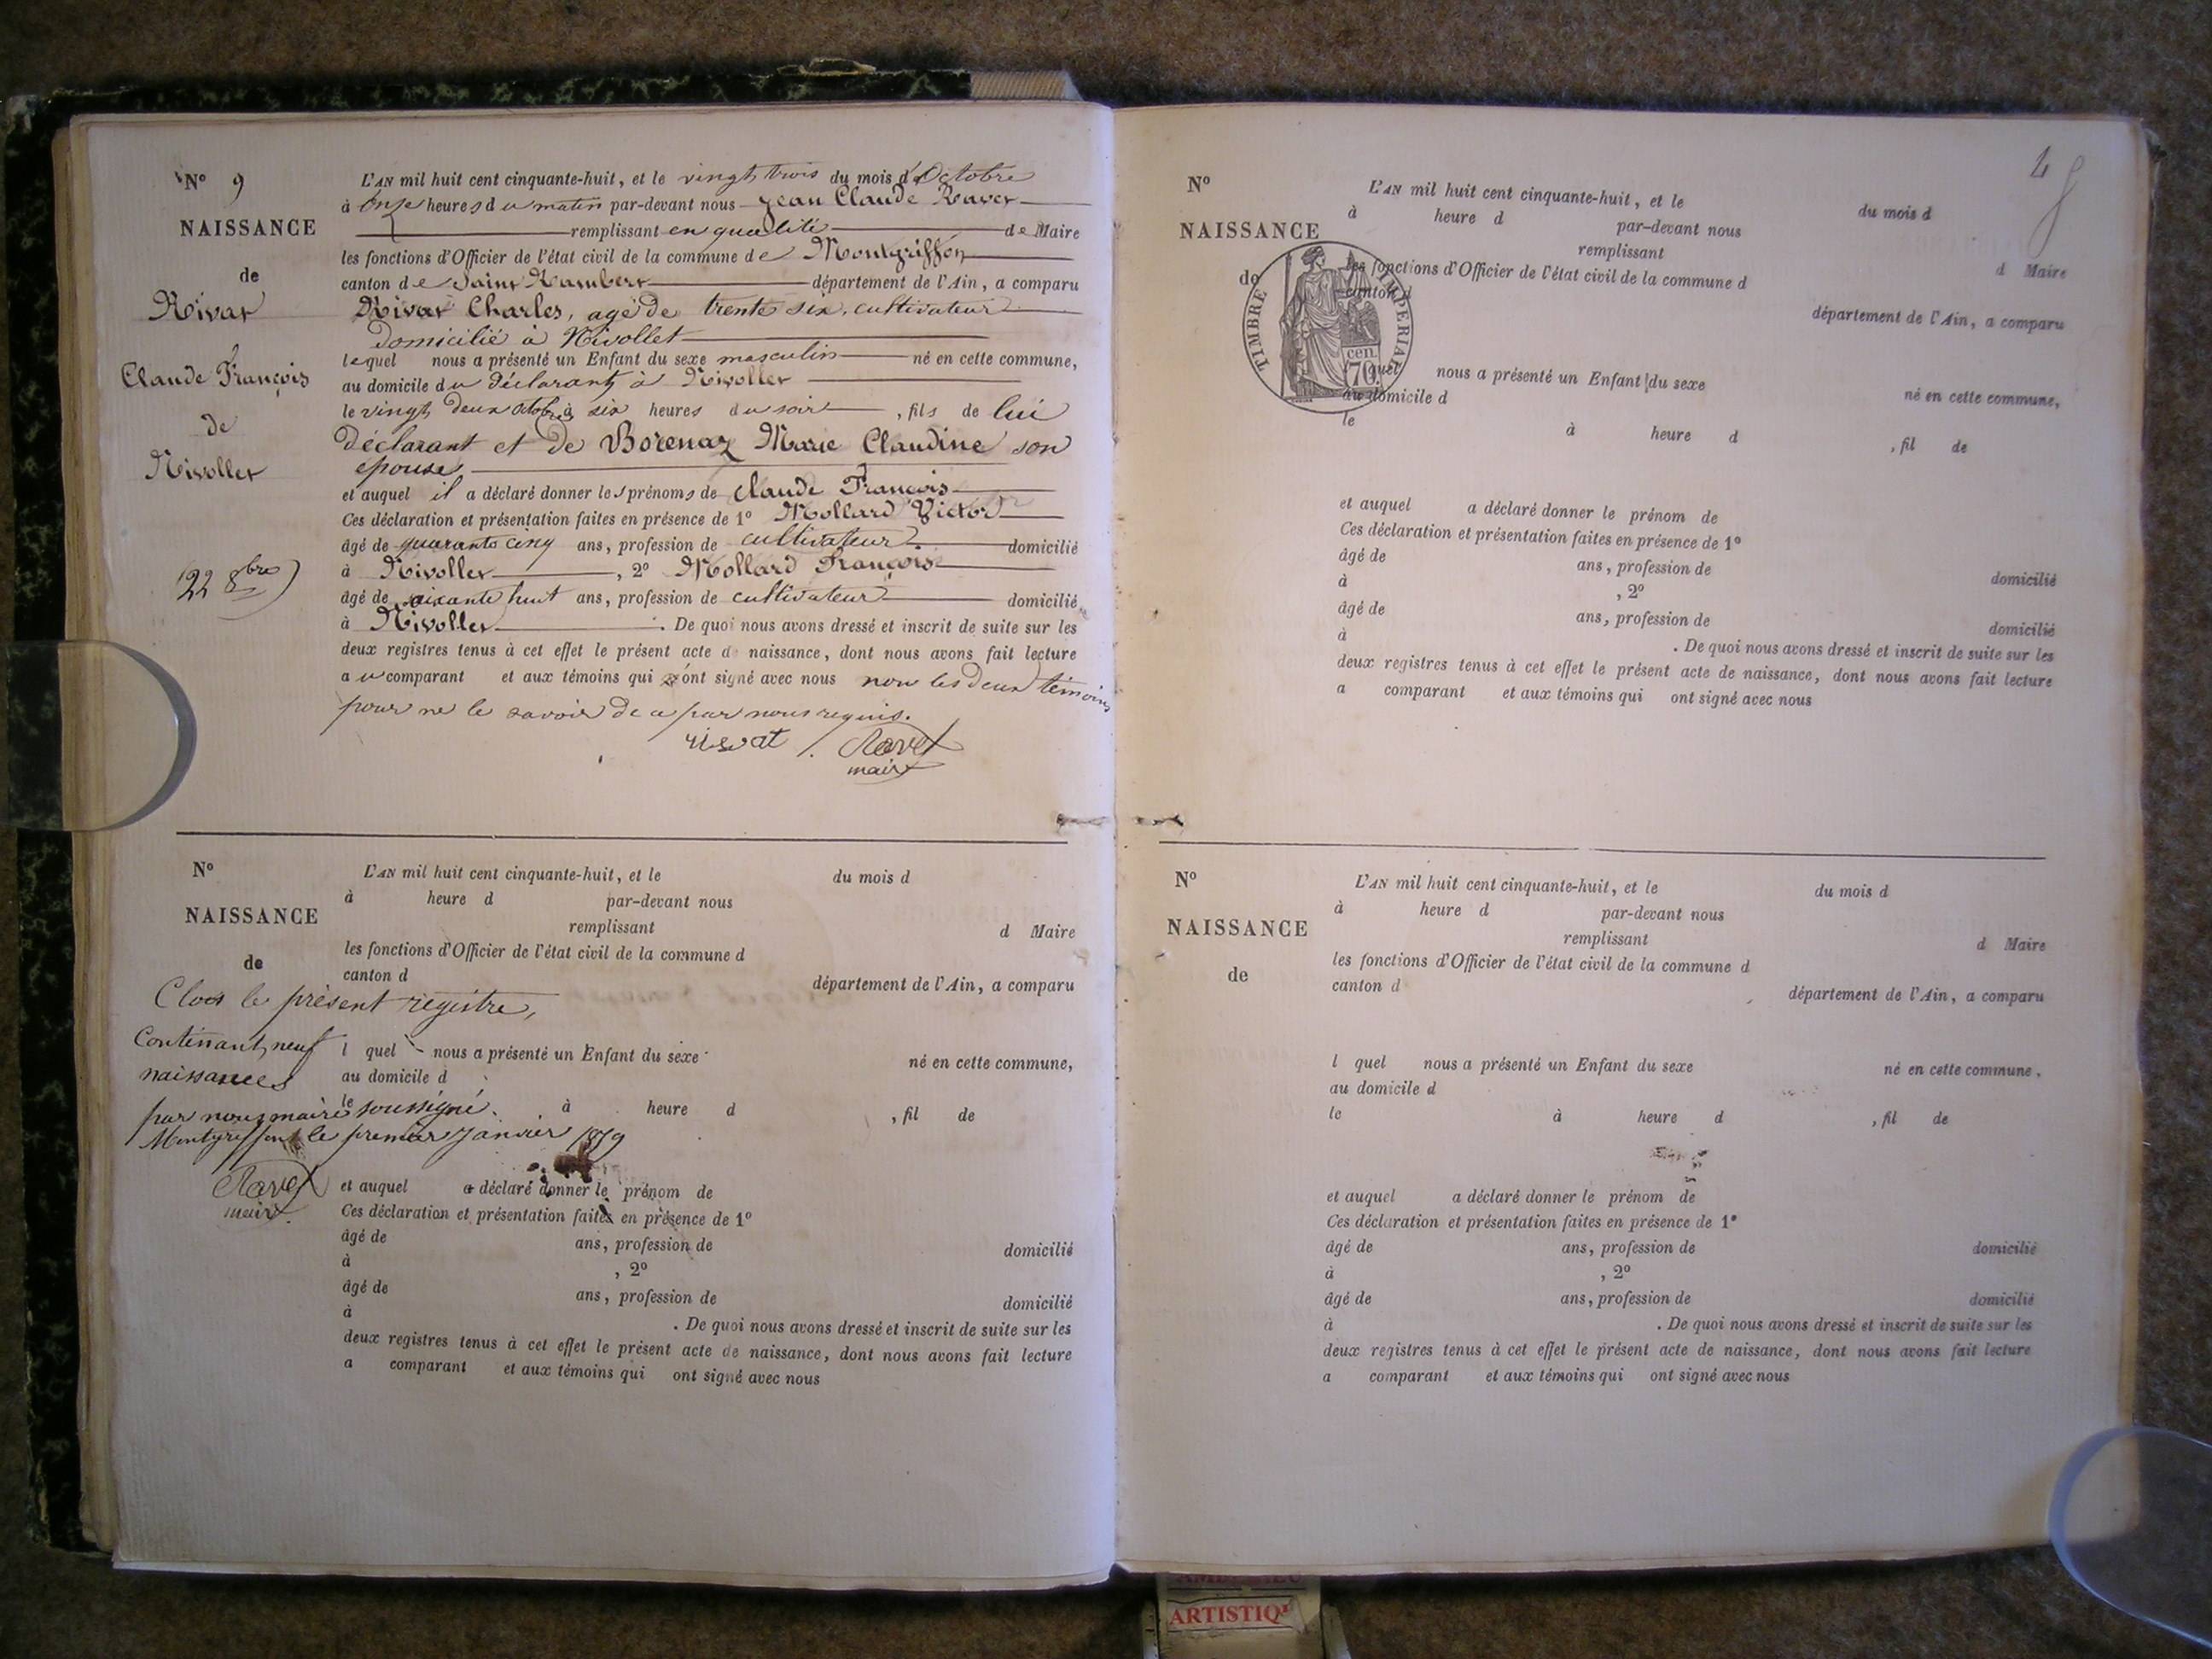 N° 9
NAISSANCE
de
Rivat
Claude François
de
Nivollet
(22 8bre)
L'AN mil huit cent cinquante-huit, et le vingt trois du mois d'Octobre
à onze heures du matin par-devant nous Jean Claude Ravet
remplissant en qualité de Maire
les fonctions d'Officier de l'état civil de la commune de Montgriffon
canton de Saint Rambert département de l'Ain, a comparu
Rivat Charles, agé de trente six, cultivateur
domicilié à Nivollet
lequel nous a présenté un Enfant du sexe masculin né en cette commune,
au domicile du déclarant à Nivollet
le vingt deux octobre à six heures du soir, fils de lui
déclarant et de Borenaz Marie Claudine son
épouse,
et auquel il a déclaré donner les prénoms de Claude François
Ces déclaration et présentation faites en présence de 1° Mollard Victor
âgé de quarante cinq ans, profession de cultivateur domicilié
à Nivollet, 2° Mollard François
âgé de soixante huit ans, profession de cultivateur domicilié
à Nivollet. De quoi nous avons dressé et inscrit de suite sur les
deux registres tenus à cet effet le présent acte de naissance, dont nous avons fait lecture
au comparant et aux témoins qui ont signé avec nous non les deux témoins
pour ne le savoir de ce par nous requis.
rivat Ravet
maire
N°
NAISSANCE
de
L'AN mil huit cent cinquante-huit, et le du mois d
à heure d par-devant nous
remplissant d Maire
les fonctions d'Officier de l'état civil de la commune d
canton d département de l'Ain, a comparu
Clos le présent registre,
Contenant neuf
naissances
par nous maire soussigné.
Montgriffon le premier Janvier 1859
Ravet
maire
l quel nous a présenté un Enfant du sexe né en cette commune,
au domicile d
le à heure d , fil de
et auquel a déclaré donner le prénom de
Ces déclaration et présentation faites en présence de 1°
âgé de ans, profession de domicilié
à , 2°
âgé de ans, profession de domicilié
à . De quoi nous avons dressé et inscrit de suite sur les
deux registres tenus à cet effet le présent acte de naissance, dont nous avons fait lecture
a comparant et aux témoins qui ont signé avec nous
N°
NAISSANCE
de
TIMBRE IMPERIAL
70 cen.
L'AN mil huit cent cinquante-huit, et le du mois d
à heure d par-devant nous
remplissant d Maire
les fonctions d'Officier de l'état civil de la commune d
canton d département de l'Ain, a comparu
l quel nous a présenté un Enfant du sexe né en cette commune,
au domicile d
le à heure d , fil de
et auquel a déclaré donner le prénom de
Ces déclaration et présentation faites en présence de 1°
âgé de ans, profession de domicilié
à , 2°
âgé de ans, profession de domicilié
à . De quoi nous avons dressé et inscrit de suite sur les
deux registres tenus à cet effet le présent acte de naissance, dont nous avons fait lecture
a comparant et aux témoins qui ont signé avec nous
N°
NAISSANCE
de
L'AN mil huit cent cinquante-huit, et le du mois d
à heure d par-devant nous
remplissant d Maire
les fonctions d'Officier de l'état civil de la commune d
canton d département de l'Ain, a comparu
l quel nous a présenté un Enfant du sexe né en cette commune.
au domicile d
le à heure d , fil de
et auquel a déclaré donner le prénom de
Ces déclaration et présentation faites en présence de 1°
âgé de ans, profession de domicilié
à , 2°
âgé de ans, profession de domicilié
à . De quoi nous avons dressé et inscrit de suite sur les
deux registres tenus à cet effet le présent acte de naissance, dont nous avons fait lecture
a comparant et aux témoins qui ont signé avec nous
ARTISTIQ